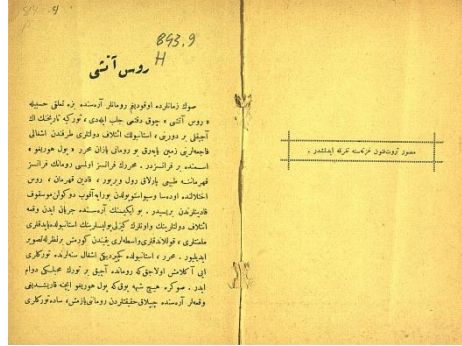 893.9
H
روس آتشى
صوك زمانلرده اوقوديغم رومانلر آره‌سنده بزه تعلقى حسبيله
« روس آتشى » چوق دقتمى جلب ايتدى ، توركيه تاريخنك اڭ
آجيقلى بر دورينى ، استانبولك ائتلاف دولتلرى طرفندن اشغالى
فاجعه‌لرينى زمين ياپه‌رق بو رومانى يازان محرر « پول هوريغو »
اسمنده بر فرانسزدر. محررك فرانسز اولمسى رومانك فرانسز
قهرماننه طبيعى پارلاق رول ويريور ، قادين قهرمان ، روس
اختلالنده اودسا وسيواستوپولدن بورايه آقوب دوكولن موسقوف
قادينلرندن بريسيدر. بو ايكيسنك آره‌سنده جريان ايدن وقعه
ائتلاف دولتلرينك واونلرك كيزلى پوليسلرينك استانبولده ياپدقلرى
ايديليور. محرر ، استانبولده كچيرديكى اشغال سنه‌لرنده توركلرى
ايى آكلامش اولاجق كه رومانده آچيق بر تورك محبلكى دوام
ايدر. صوكره هيچ شبهه يوق كه پول هوريغو ايچنه قاريشديغى
وقعه‌لر آره‌سنده چيپلاق حقيقتلردن رومانى يازمش، ساده توركلرى
مصور ثروت فنون غزته‌سنه تفرقه ايدلمشدر .